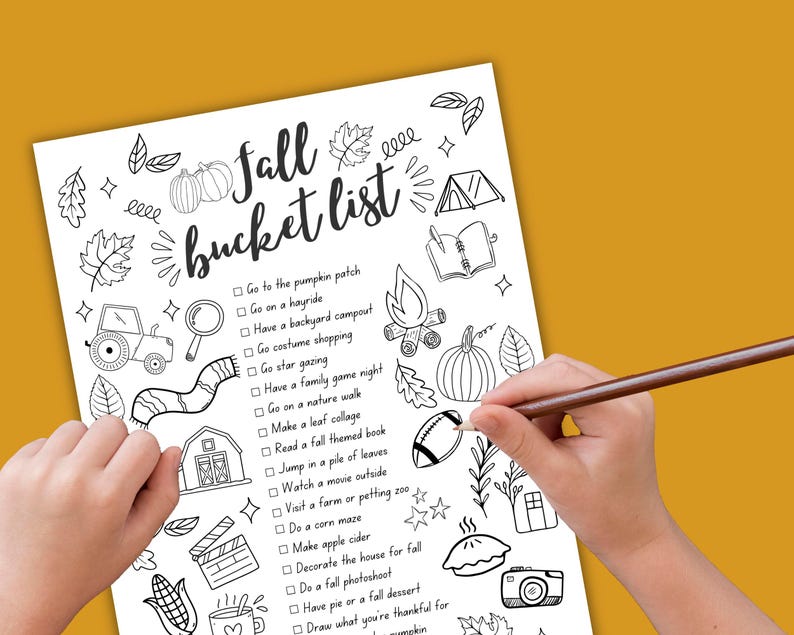 fall
bucket list
Go to the pumpkin patch
Go on a hayride
Have a backyard campout
Go costume shopping
Go star gazing
Have a family game night
Go on a nature walk
Make a leaf collage
Read a fall themed book
Jump in a pile of leaves
Watch a movie outside
Visit a farm or petting zoo
Do a corn maze
Make apple cider
Decorate the house for fall
Do a fall photoshoot
Have pie or a fall dessert
Draw what you're thankful for
pumpkin